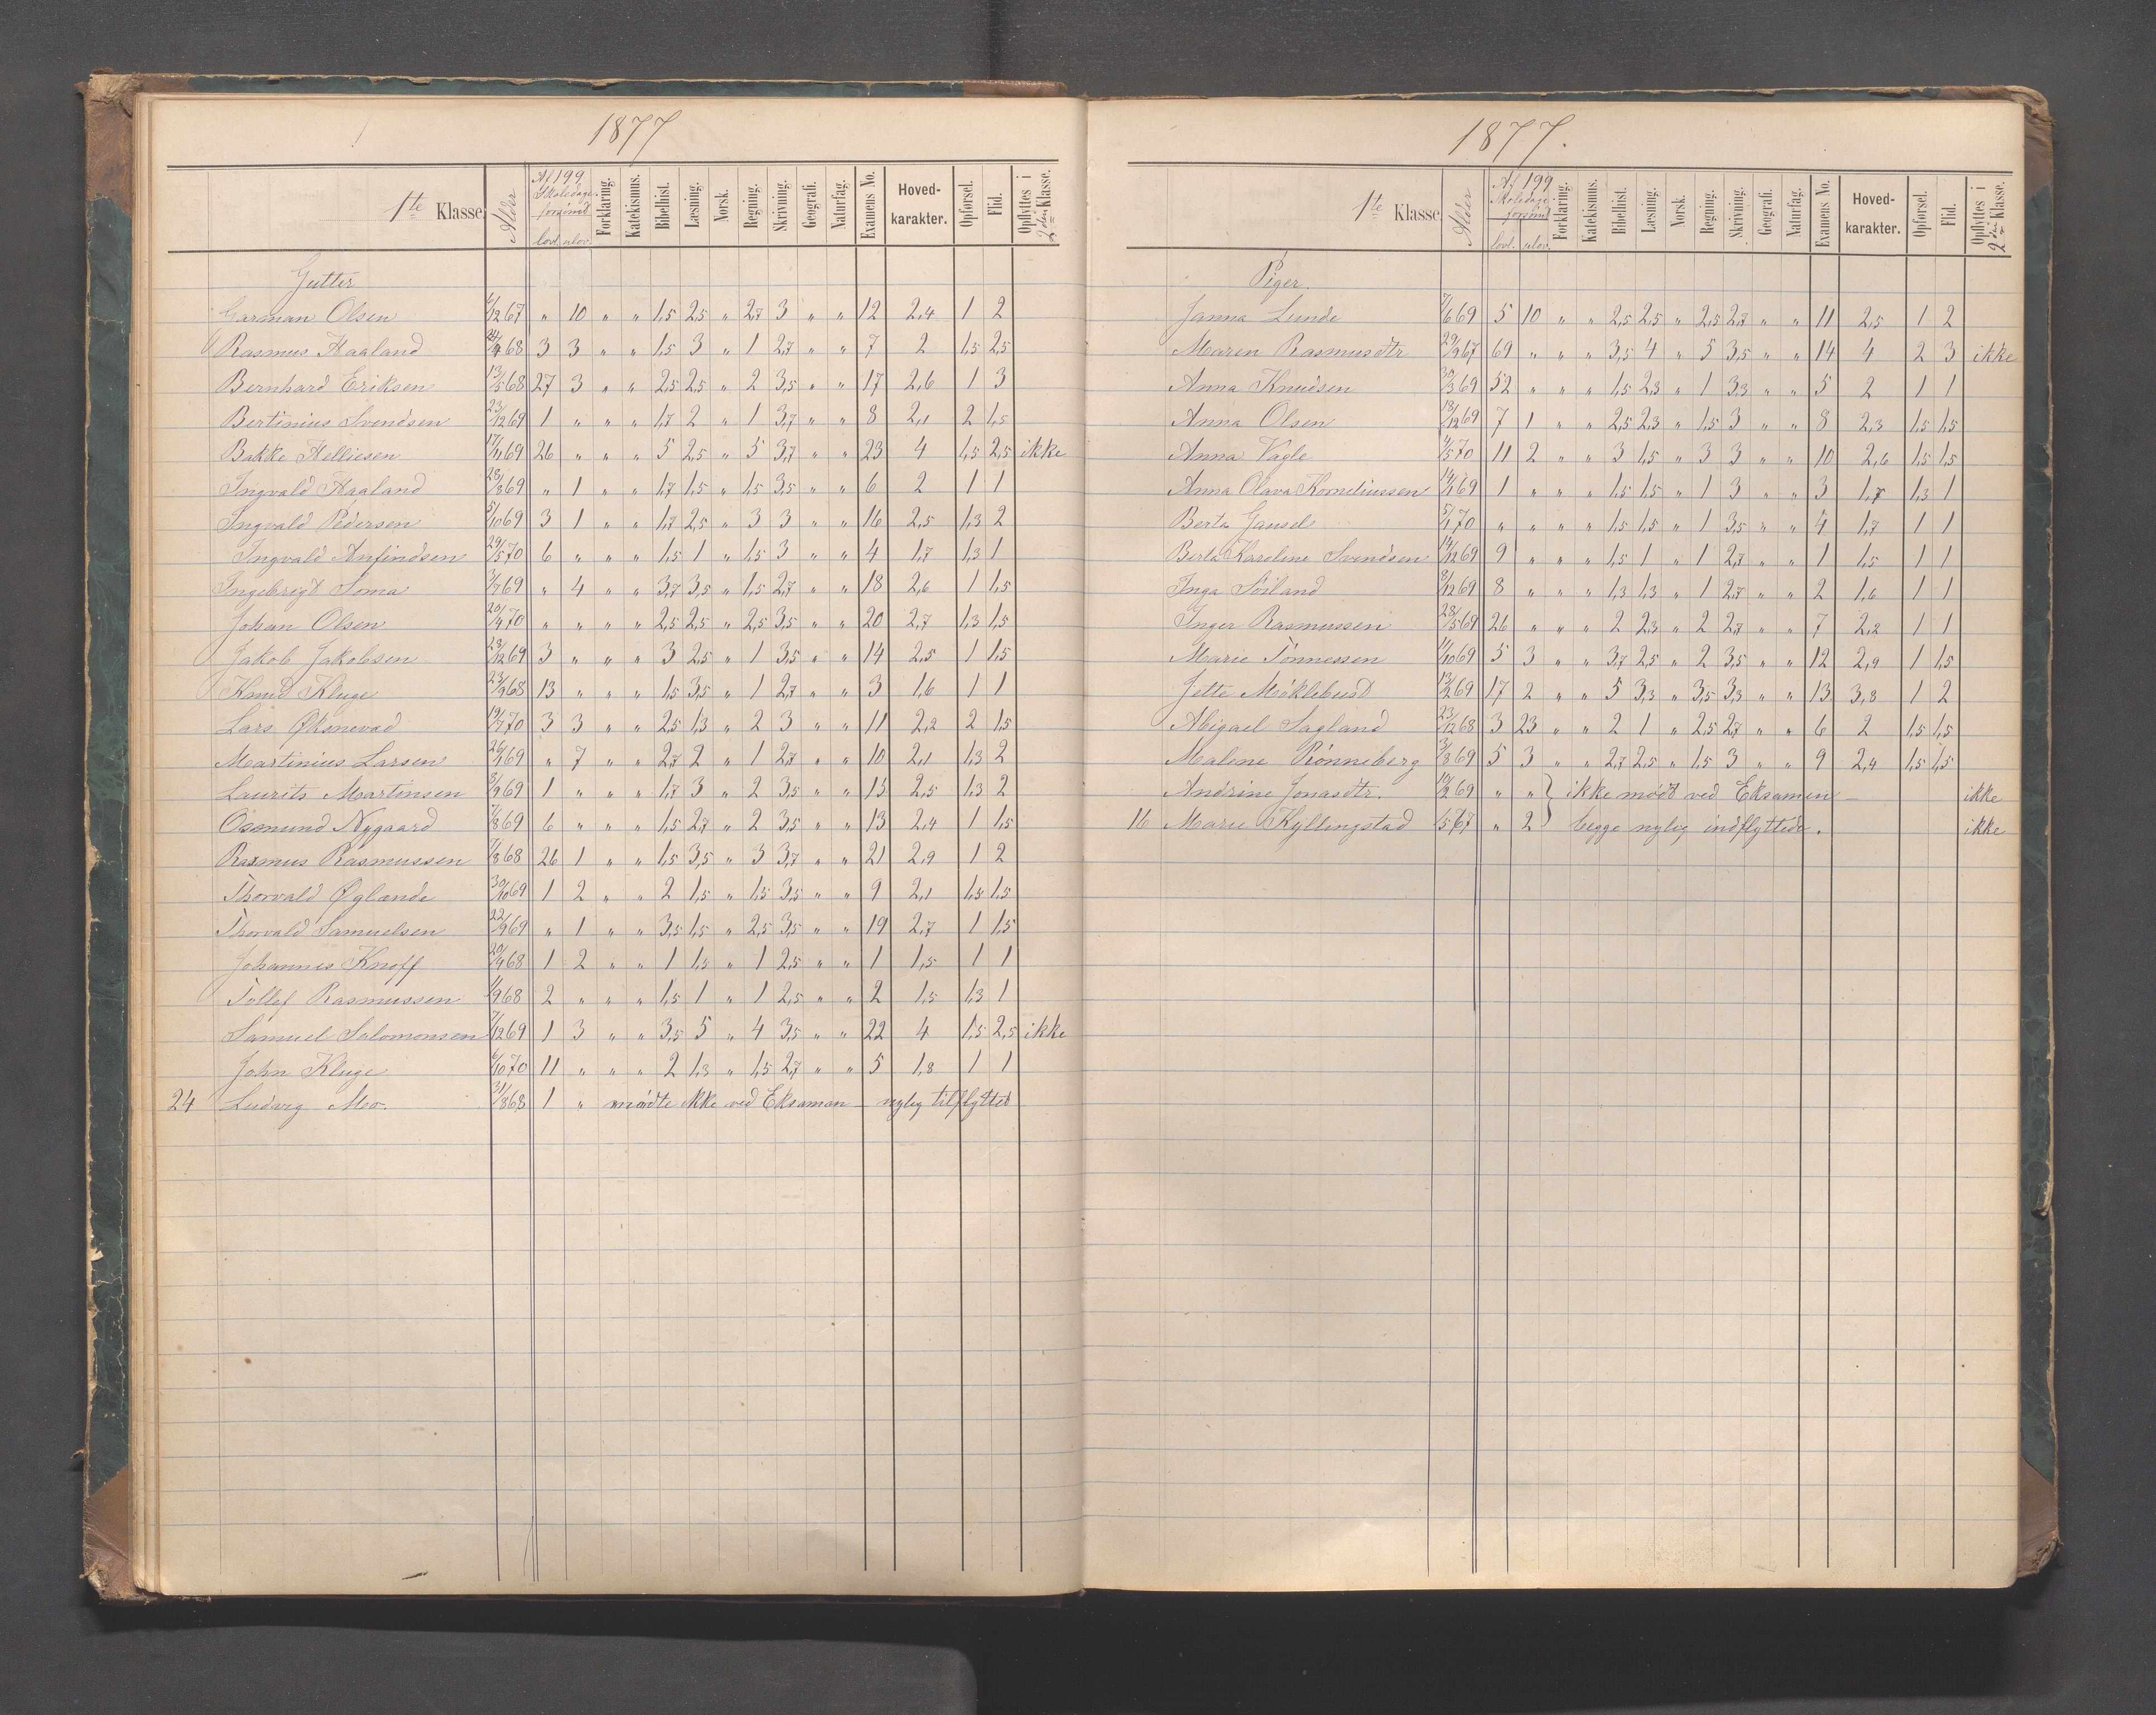 1877
1te Klasse. Alder Af 199 Skoledage forsømt lovl. ulov. Forklaring. Katekismus. Bibelhist. Læsning. Norsk. Regning. Skrivning. Geografi. Naturfag. Examens No. Hoved-karakter. Opførsel. Flid. Opflyttes i 2den Klasse.
Gutter
Garman Olsen 67 " 10 " " 1,5 2,5 " 2,7 3 " " 12 2,4 1 2
Rasmus Haaland 68 3 3 " " 1,5 3 " 1 2,7 " " 7 2 1,5 2,5
Bernhard Eriksen 13/5 68 27 3 " " 2,5 2,5 " 2 3,5 " " 17 2,6 1 3
Bertinius Svendsen 23/12 69 1 " " " 1,7 2 " 1 3,7 " " 8 2,1 2 1,5
Bakke Helliesen 17/11 69 26 " " " 5 2,5 " 5 3,7 " " 23 4 1,5 2,5 ikke
Ingvald Haaland 28/8 69 " 1 " " 1,7 1,5 " 1,5 3,5 " " 6 2 1 1
Ingvald Pedersen 5/10 69 3 1 " " 1,7 2,5 " 3 3 " " 16 2,5 1,3 2
Ingvald Anfindsen 29/5 70 6 " " " 1,5 1 " 1,5 3 " " 4 1,7 1,3 1
Ingebrigt Soma 3/7 69 " 4 " " 3,7 3,5 " 1,5 2,7 " " 18 2,6 1 1,5
Johan Olsen 20/4 70 " " " " 2,5 2,5 " 2,5 3,5 " " 20 2,7 1,3 1,5
Jakob Jakobsen 28/12 69 3 " " " 3 2,5 " 1 3,5 " " 14 2,5 1 1,5
Knud Kluge 23/9 68 13 " " " 1,5 3,5 " 1 2,7 " " 3 1,6 1 1
Lars Øksnevad 19/7 70 3 3 " " 2,5 1,3 " 2 3 " " 11 2,2 2 1,5
Martinius Larsen 26/1 69 " 7 " " 2,7 2 " 1 2,7 " " 10 2,1 1,3 2
Laurits Martinsen 8/9 69 1 " " " 1,7 3 " 2 3,5 " " 15 2,5 1,3 2
Osmund Nygaard 7/8 69 6 " " " 1,5 2,7 " 2 3,5 " " 13 2,4 1 1,5
Rasmus Rasmussen 7/8 68 26 1 " " 1,5 3,5 " 3 3,7 " " 21 2,9 1 2
Thorvald Øglænde 30/10 69 1 2 " " 2 1,5 " 1,5 3,5 " " 9 2,1 1,5 1,5
Thorvald Samuelsen 22/9 69 " 1 " " 3,5 1,5 " 2,5 3,5 " " 19 2,7 1 1,5
Johannes Knoff 20/9 68 1 2 " " 1 1,5 " 1 2,5 " " 1 1,5 1 1
Tollef Rasmussen 1/9 68 2 " " " 1,5 1 " 1 2,5 " " 2 1,5 1,3 1
Samuel Salomonsen 7/12 69 1 3 " " 3,5 5 " 4 3,5 " " 22 4 1,5 2,5 ikke
John Kluge 6/10 70 11 " " " 2 1,3 " 1,5 2,7 " " 5 1,8 1 1
24 Ludvig Mo. 31/8 68 1 " mødte ikke ved Eksamen – nylig tilflyttet
1877.
1te Klasse. Alder Af 199 Skoledage forsømt lovl. ulov. Forklaring. Katekismus. Bibelhist. Læsning. Norsk. Regning. Skrivning. Geografi. Naturfag. Examens No. Hoved-karakter. Opførsel. Flid. Opflyttes i 2den Klasse.
Piger.
Janna Lunde 7/6 69 5 10 " " 2,5 2,5 " 2,5 2,7 " " 11 2,5 1 2
Maren Rasmusdtr 29/9 67 69 " " " 3,5 4 " 5 3,5 " " 14 4 2 3 ikke
Anna Knudsen 30/3 69 52 " " " 1,5 2,3 " 1 3,3 " " 5 2 1 1
Anna Olsen 18/12 69 7 1 " " 2,5 2,3 " 1,5 3 " " 8 2,3 1,5 1,5
Anna Vagle 4/5 70 11 2 " " 3 1,5 " 3 3 " " 10 2,6 1,5 1,5
Anna Olava Korneliussen 14/1 69 1 " " " 1,5 1,5 " 1 3 " " 3 1,7 1,3 1
Berta Gausel 5/1 70 " " " " 1,5 1,5 " 1 3,5 " " 4 1,7 1 1
Berta Karoline Svendsen 14/12 69 9 " " " 1,5 1 " 1 2,7 " " 1 1,5 1 1
Inga Soiland 8/12 69 8 " " " 1,3 1,3 " 1 2,7 " " 2 1,6 1 1
Inger Rasmussen 28/5 69 26 " " " 2 2,3 " 2 2,7 " " 7 2,2 1 1
Marie Tønnessen 11/10 69 5 3 " " 3,7 2,5 " 2 3,5 " " 12 2,9 1 1,5
Jette Møklebust 13/2 69 17 2 " " 5 3,3 " 3,5 3,3 " " 13 3,8 1 2
Abigael Sagland 23/12 68 3 23 " " 2 1 " 2,5 2,7 " " 6 2 1,5 1,5
Malene Rønneberg 3/8 69 5 3 " " 2,7 2,5 " 1,5 3 " " 9 2,4 1,5 1,5
Andrine Jonasdtr. 19/2 69 " " } ikke mødt ved Eksamen – ikke
16 Marie Kyllingstad 67 " 2 } begge nylig indflyttede. ikke